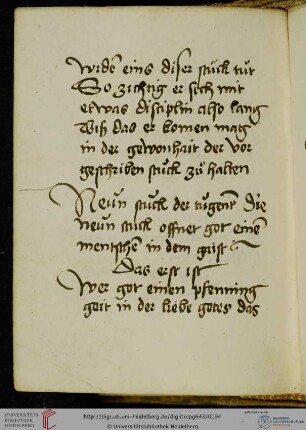 widē eins diser stuck tüt
So zichtig er sich mit
etwas disciplin also lang
biß das er komen mag
in der gewonhait der vor
geschriben stuck zů halten
Neün stuck der tůgent Die
neün stuck offnet got einē
mentschē in dem gaist
Das erst ist
Wer got einen pfenning
geit in der liebe gotes das
UNIVERSITÄTS
BIBLIOTHEK
HEIDELBERG
http://digi.ub.uni-heidelberg.de/diglit/cpg643/0164
© Universitätsbibliothek Heidelberg